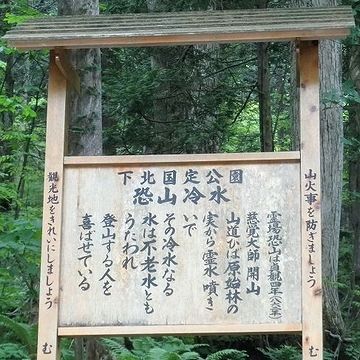 下北国定公園
恐山冷水
霊場恐山は貞観四年(八六二年)
慈覚大師 開山
山道ひば原始林の
実から霊水噴き
いで
その冷水なる
水は不老水とも
うたわれ
登山する人を
喜ばせている
山火事を防ぎましょう
む
観光地をきれいにしましょう
む